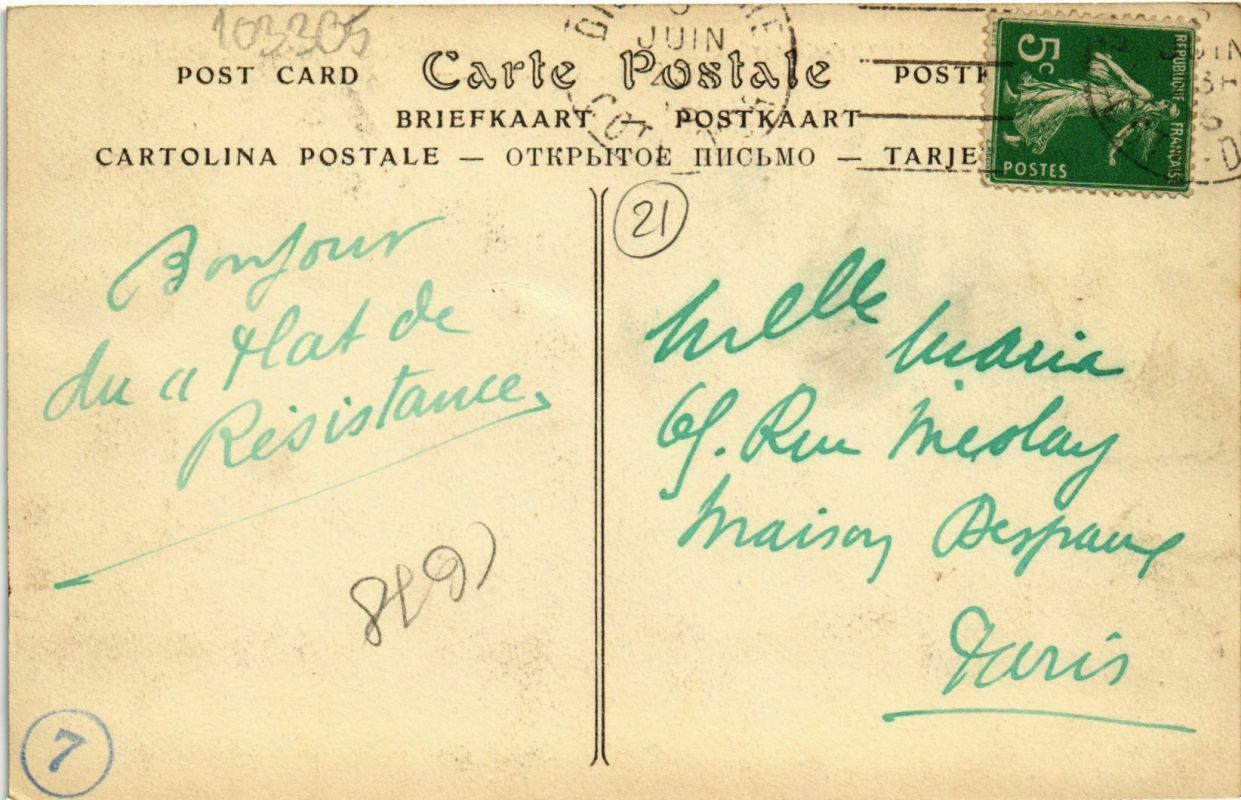 103305
JUIN
POST CARD Carte Postale POSTK
BRIEFKAART — POSTKAART
CARTOLINA POSTALE — ОТКРЫТОЕ ПИСЬМО — TARJE
5c
REPUBLIQUE FRANÇAISE
POSTES
JUIN
Bonjour
du " Plat de
Résistance
21
Melle Maria
Rue Meslay
Maison Despaux
Paris
7